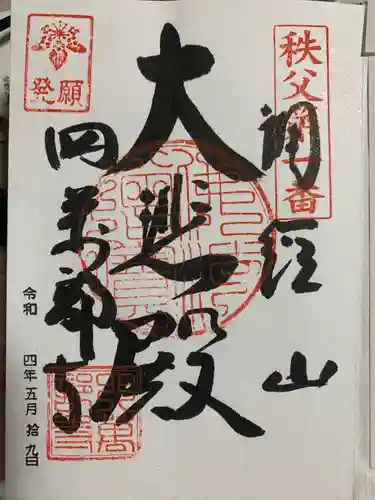 秩父第一番
誦經山
大悲殿
發願
四萬部寺
令和 四年 五月 拾九日